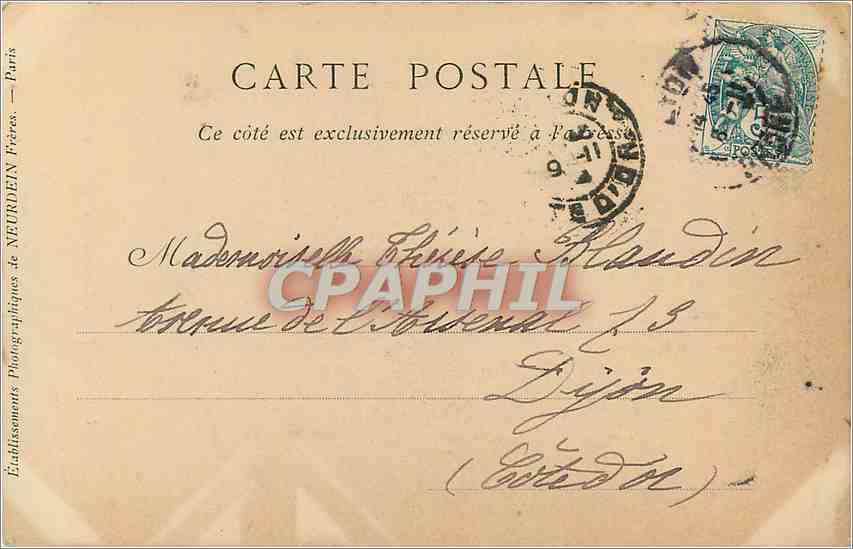 CARTE POSTALE
Ce côté est exclusivement réservé à l'adresse
Mademoiselle Thérèse Blandin
Avenue de l'Arsenal 13
Dijon
(Côte d'Or)
CPAPHIL
Établissements Photographiques de NEURDEIN Frères. — Paris
LYON